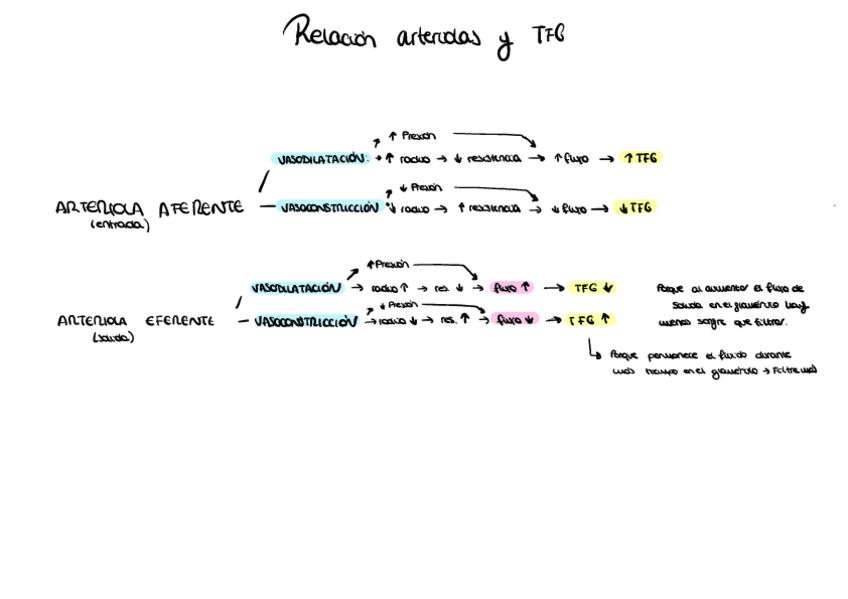 Relación arteriolas y TFG
↑ Presión
VASODILATACIÓN: → ↑ radio → ↓ resistencia → ↑ flujo → ↑ TFG
↓ Presión
ARTERIOLA AFERENTE — VASOCONSTRICCIÓN ↓ radio → ↑ resistencia → ↓ flujo → ↓ TFG
(entrada)
↑ Presión
VASODILATACIÓN → radio ↑ → res. ↓ → flujo ↑ → TFG ↓
Porque al aumentar el flujo de
salida en el glomérulo hay
menos sangre que filtrar.
↓ Presión
ARTERIOLA EFERENTE — VASOCONSTRICCIÓN → radio ↓ → res. ↑ → flujo ↓ → TFG ↑
(salida)
Porque permanece el fluido durante
más tiempo en el glomérulo → Filtra más